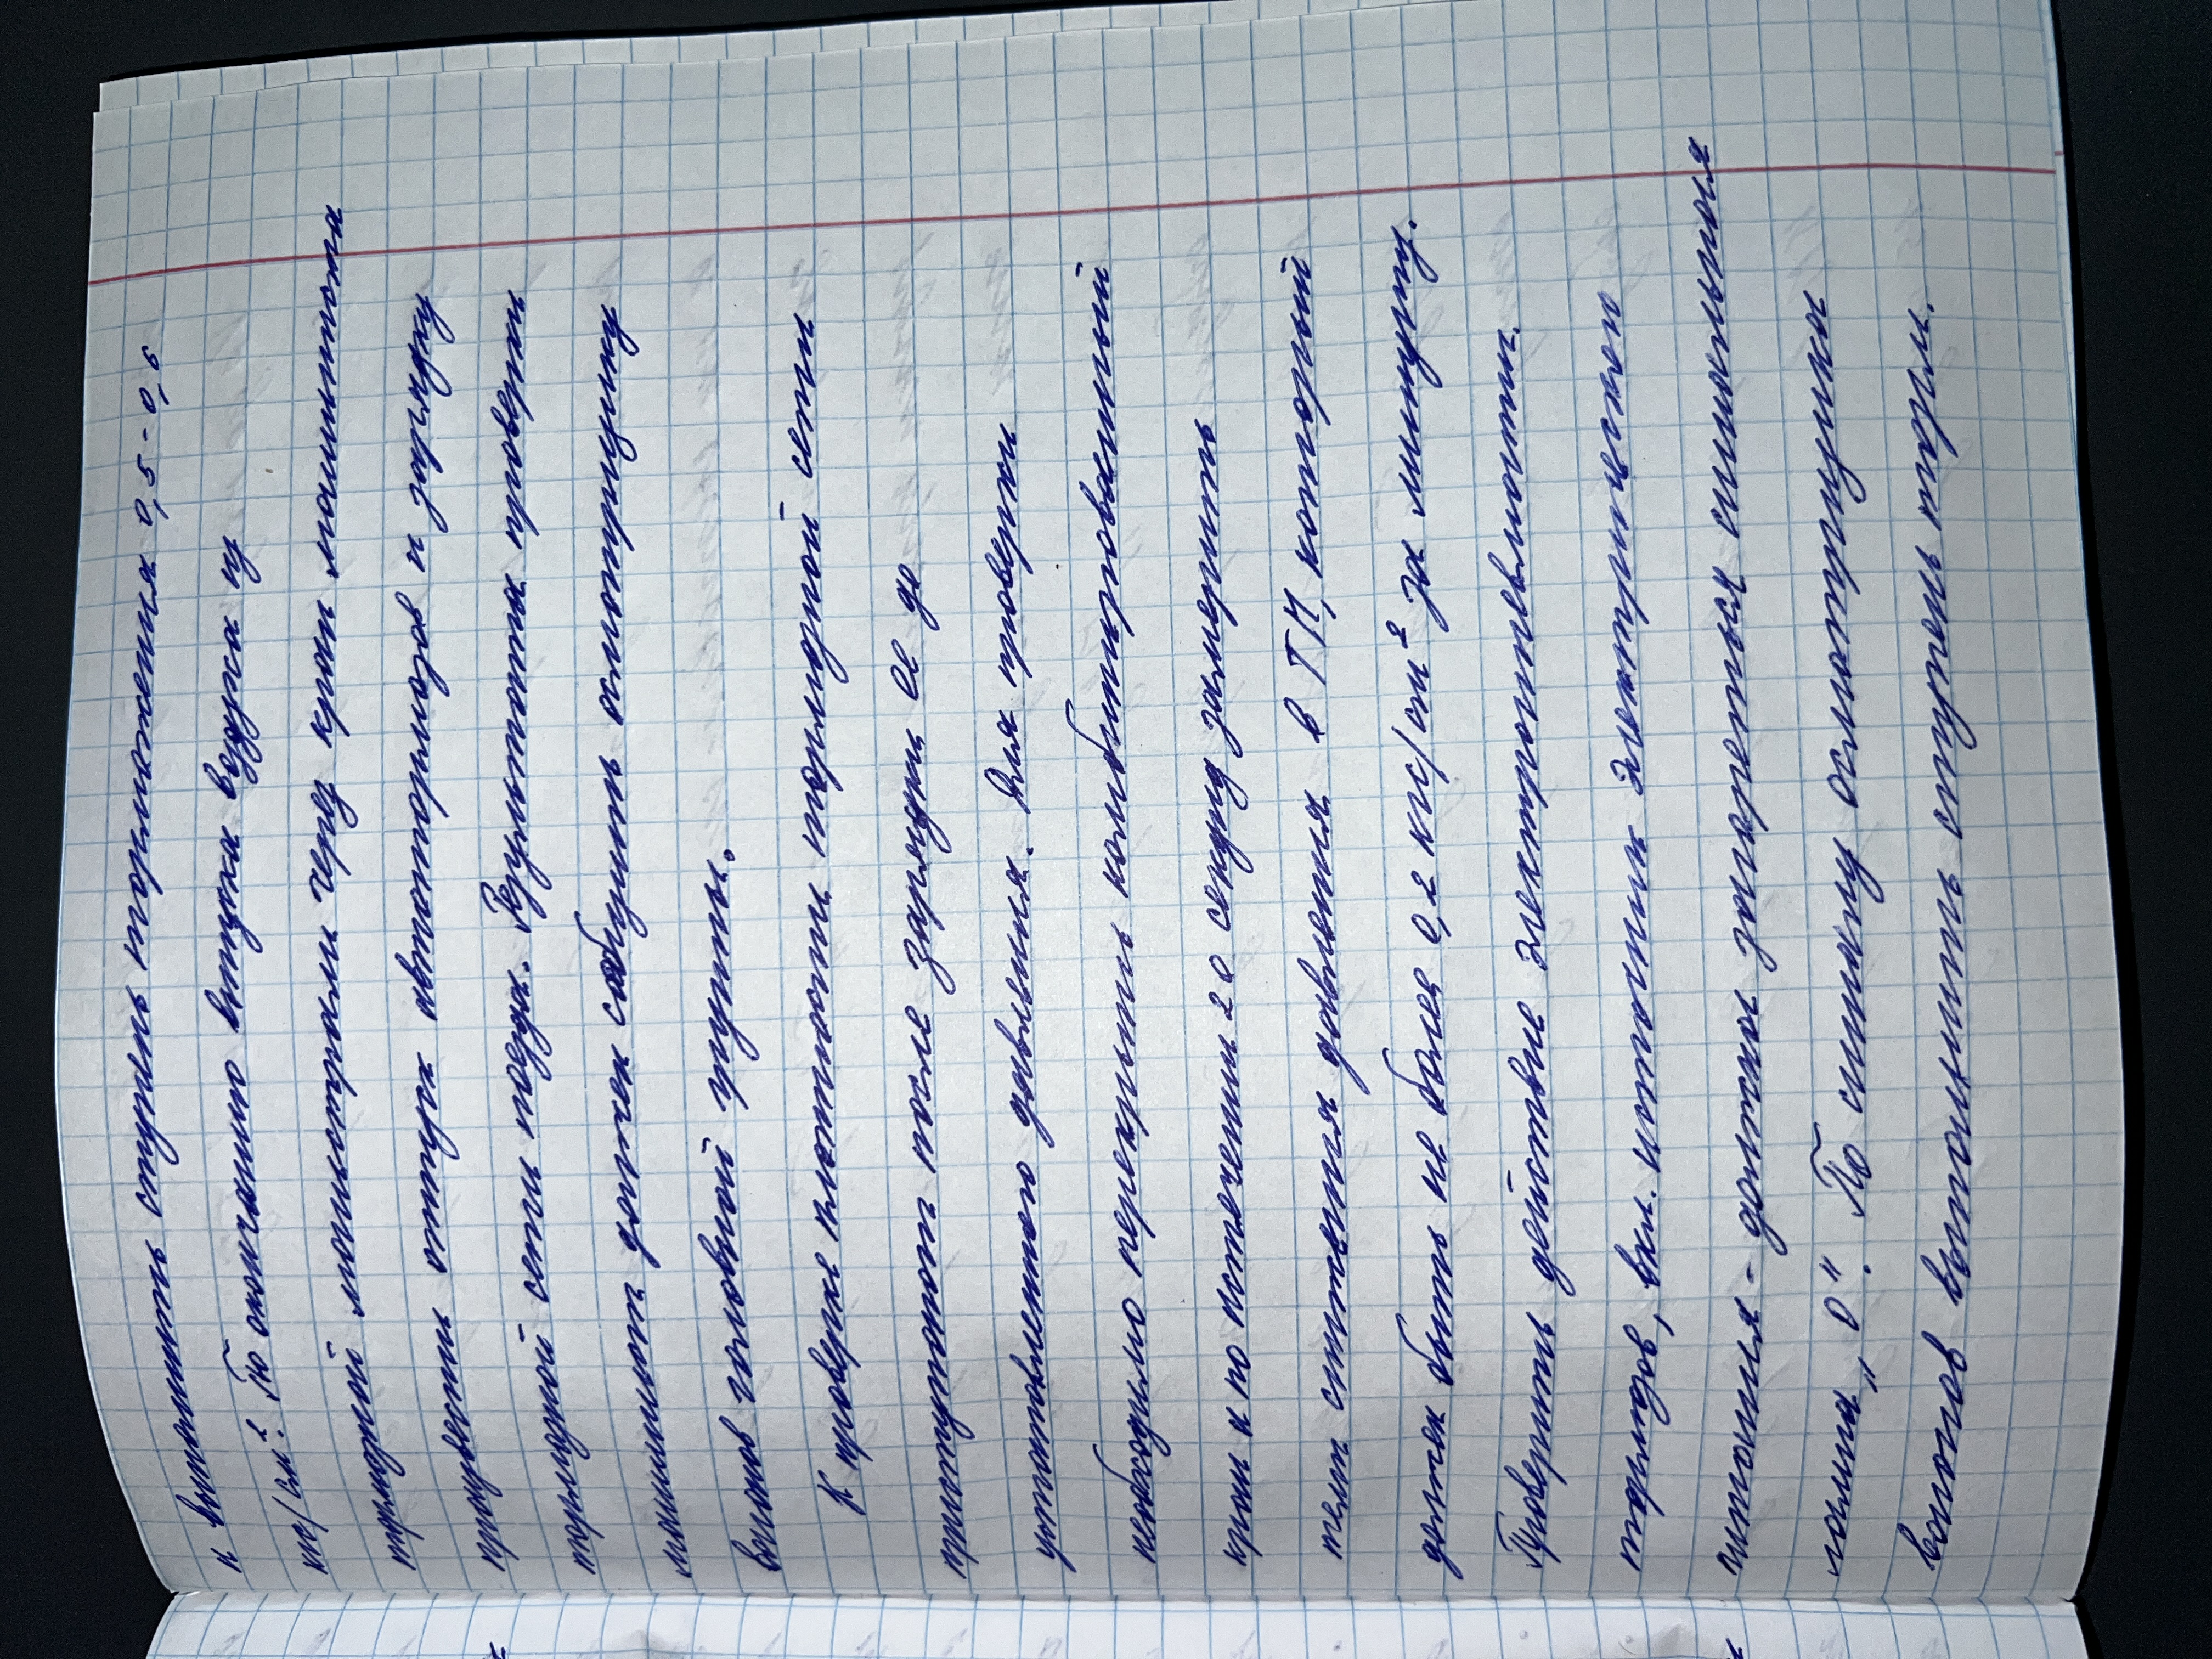 и выполнить ступень торможения 0,5 - 0,6
кгс/см². По окончанию выпуска воздуха из
тормозной магистрали через кран машиниста
произвести отпуск автотормозов и зарядку
тормозной сети поезда. Результаты проверки
машинист должен сообщить осмотрщику
вагонов головной группы.
К проверке плотности тормозной сети
приступают после зарядки ее до
установленного давления. Для проверки
необходимо перекрыть комбинированный
кран и по истечении 20 секунд замерить
темп снижения давления в ТМ, который
должен быть не более 0,2 кгс/см² за минуту.
Проверить действие электропневматич.
тормозов, вкл. источник электрического
питания - должна загореться сигнальная
лампа „О". По сигналу осмотрщика
вагонов выполнить ступень торм.